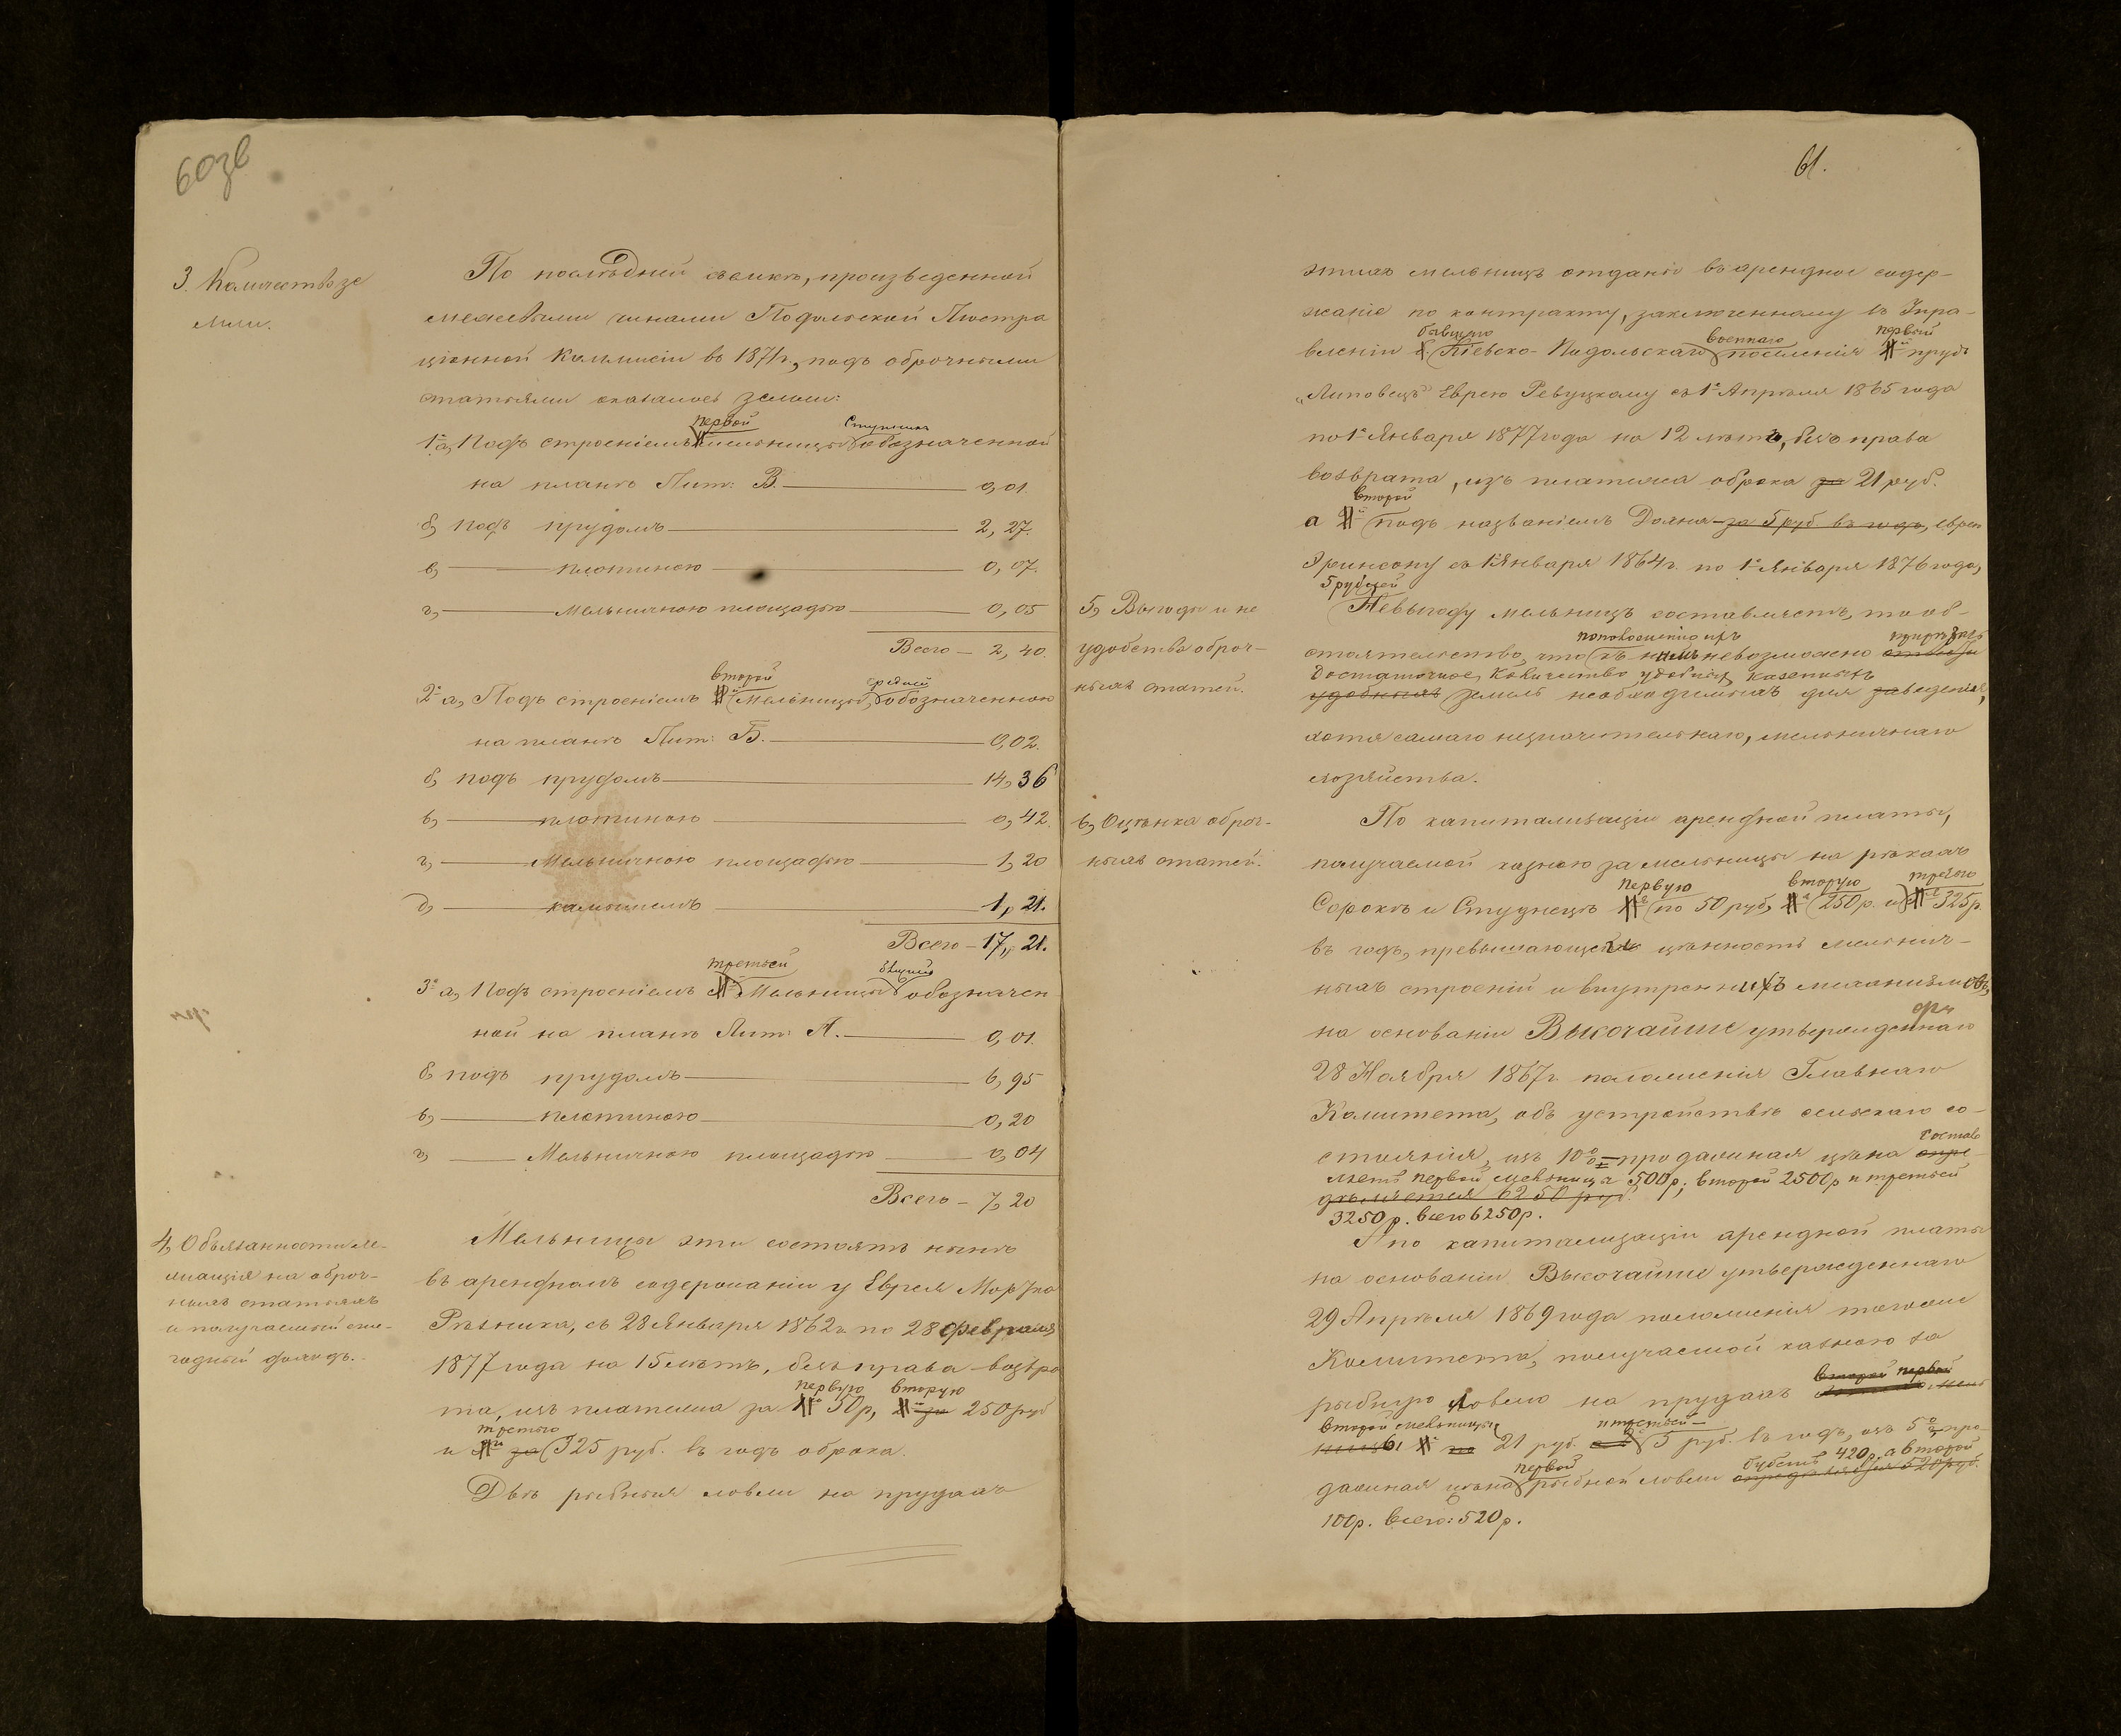 60зв
3. Количество зе
мли.
По послѣдней съемкѣ, произведенной
межевыми чинами Подольской Люстра
ціонной Коммисіи въ 1874г, подъ оброчными
статьями оказалось земли:
первой Студенец
1. а, Подъ строеніемъ мельницы обозначенной
на планѣ Лит: В. — 0,01.
б, подъ прудомъ — 2, 27.
в, — плотиною — 0, 07.
г, — Мельничною площадью — 0, 05
Всего — 2, 40.
второй средней
2. а, Подъ строеніемъ Мельницы, обозначенной
на планѣ Лит: Б. — 0,02.
б, подъ прудомъ — 14, 36
в, — плотиною — 0, 42.
г, — Мельничною площадью — 1, 20
д, — камышемъ — 1, 21.
Всего — 17, 21.
третьей
3. а, Подъ строеніемъ Мельницы обозначен
ной на планѣ Лит: А. — 0, 01.
б, подъ прудомъ — 6, 95
в, — плотиною — 0, 20
г, — Мельничною площадью — 0, 04
Всего — 7, 20
4, Обязанности ле-
жащія на оброч-
ныхъ статьяхъ
и получаемый еже-
годный доходъ.
Мельницы эти состоятъ нынѣ
въ арендномъ содержаніи у Еврея
Рѣзника, съ 28 Января 1862г. по 28 февраля
1877 года на 15 лѣтъ, безъ права возвра
первую вторую
та, изъ платежа за 50р, за 250 руб
третью
и за 325 руб. въ годъ оброка.
Двѣ рыбныя ловли на прудахъ
61.
этихъ мельницъ отданы въ арендное содер-
жаніе по контракту, заключенному въ Упра-
бывшаго военнаго первый
вленіи Кіевско-Подольскаго поселенія прудъ
„Липовецъ" Еврею Ревуцкому съ 1 Апрѣля 1865 года
по 1 Января 1877 года на 12 лѣтъ, безъ права
возврата, изъ платежа оброка за 21 руб.
второй
а подъ названіемъ за 5 руб въ годъ, еврею
съ 1 Января 1864г. по 1 Января 1876 года,
5 рублей
5, Выгоды и не
удобства оброч-
ныхъ статей.
Невыгоду мельницъ составляетъ, то об-
прирѣзать
стоятельство, что къ нимъ невозможно
достаточное количество удобныхъ казенныхъ
удобныхъ земель необходимыхъ для заведенія,
хотя самаго незначительнаго, мельничнаго
хозяйства.
6, Оцѣнка оброч-
ныхъ статей.
По капитализаціи арендной платы,
получаемой казною за мельницы на рѣкахъ
первую вторую третью
Сорокѣ и Студнецѣ по 50 руб, 250р. и 325р.
въ годъ, превышающей цѣнность мельнич-
ныхъ строеній и внутреннихъ механизмовъ,
на основаніи Высочайше утвержденнаго
28 Ноября 1867г. положенія Главнаго
Комитета, объ устройствѣ сельскаго со-
состав
стоянія, изъ 10% продажная цѣна опре-
ляетъ первой мельницы 500р; второй 2500р и третьей
дѣляется 6250 руб.
3250р. всего 6250р.
А по капитализаціи арендной платы
на основаніи Высочайше утвержденнаго
29 Апрѣля 1869 года положенія тогоже
Комитета, получаемой казною за
второй первой
рыбную ловлю на прудахъ
второй мельницы и третьей
21 руб. 5 руб. въ годъ, изъ 5% про-
первой будетъ 420р. а второй
дажная цѣна рыбной ловли опредѣляется 520 руб.
100р. всего: 520р.